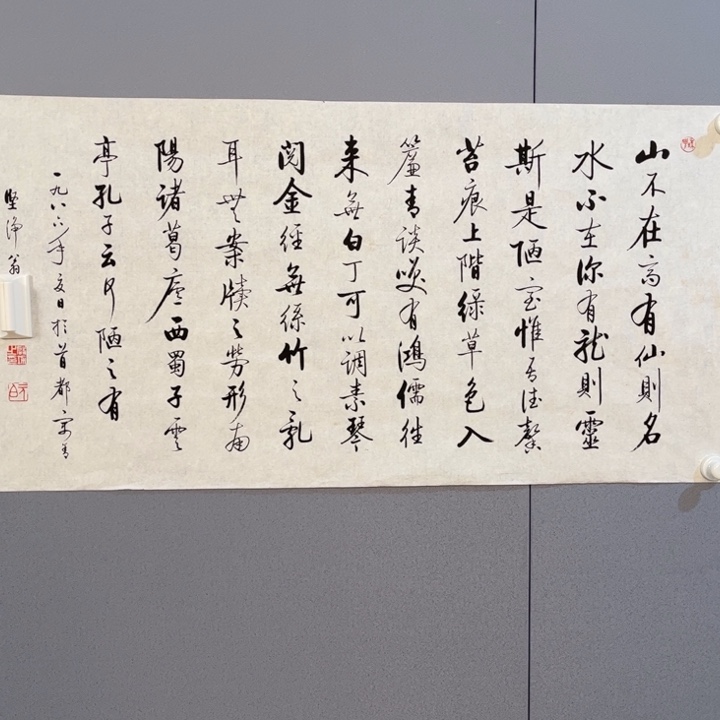 山不在高有仙則名
水不在深有龍則靈
斯是陋室惟吾德馨
苔痕上階緑草色入
簾青談笑有鴻儒往
来無白丁可以調素琴
閱金經無絲竹之亂
耳無案牘之勞形南
陽諸葛廬西蜀子雲
亭孔子云何陋之有
一九八六年夏日於首都寓
堅浄翁
元白